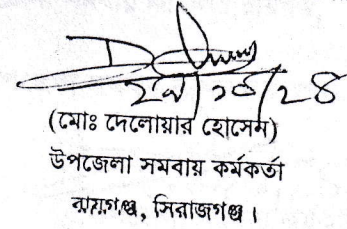 ২৯/১০/২৪
(মোঃ দেলোয়ার হোসেন)
উপজেলা সমবায় কর্মকর্তা
রায়গঞ্জ, সিরাজগঞ্জ।